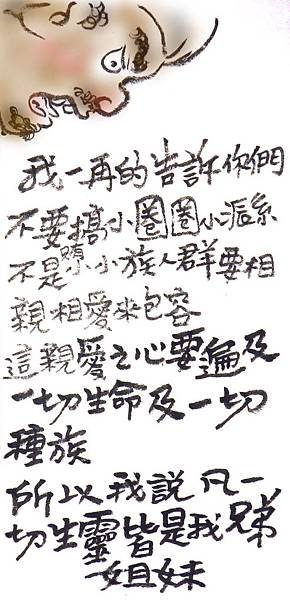 我一再的告許你們
不要搞小圈圈小派系
不是顕小小族人群要相
親相愛來包容
這親愛之心要遍及
一切生命及一切
種族
所以我説凡一
切生靈皆是我兄弟
姐妹